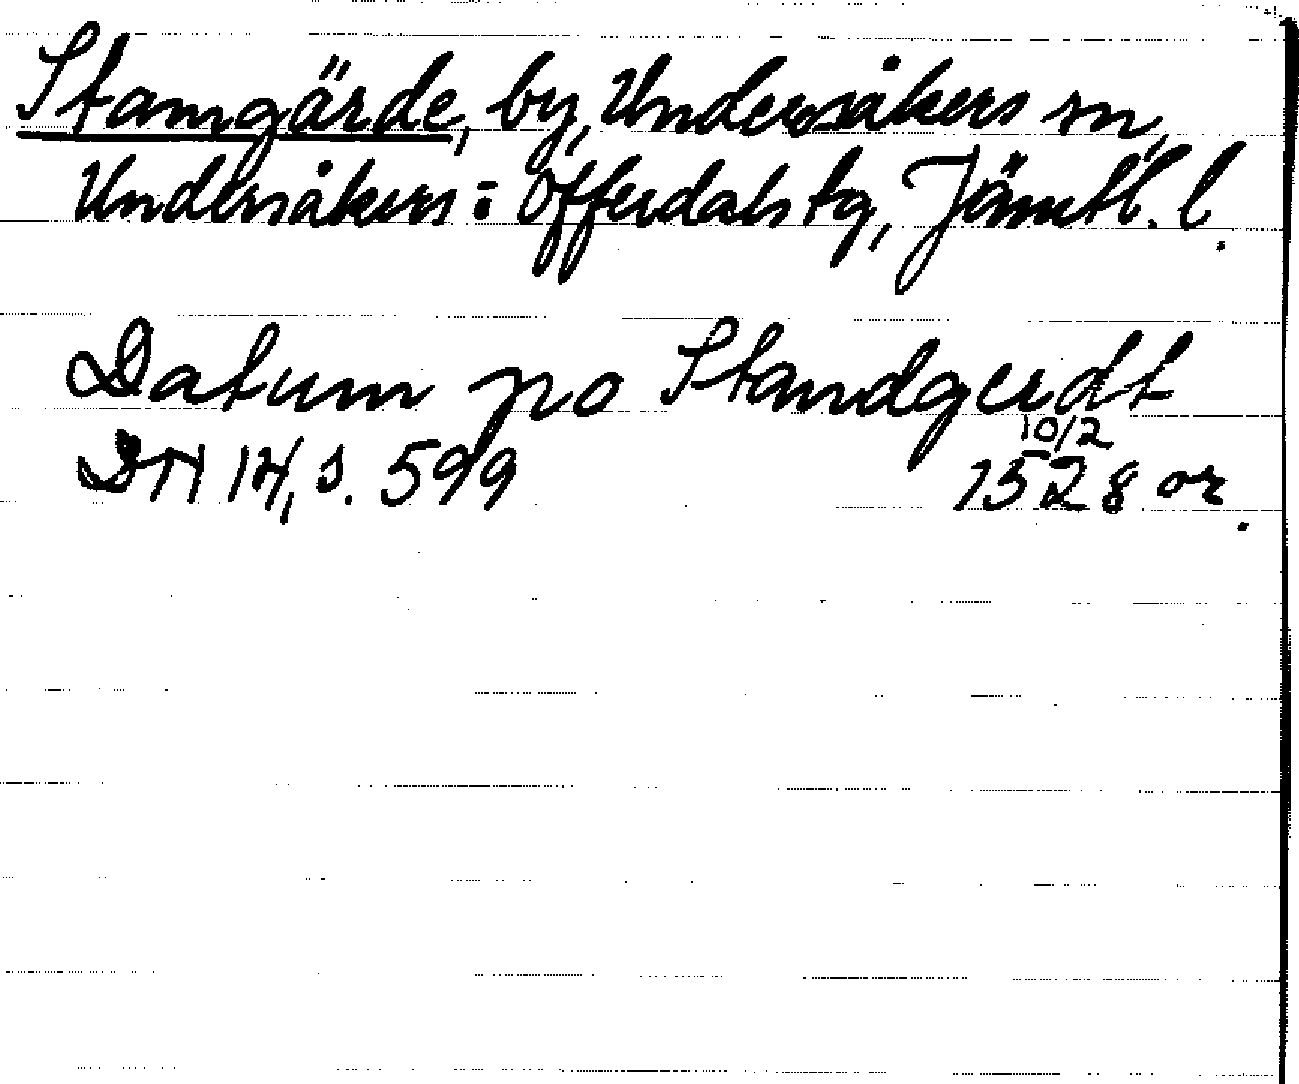 Stamgärde, by, Undersåkers sn,
Undersåkers: Offerdals tg, Jämtl. l.
Datum po Standgerdt
10/2
DN 14, s. 599 1528 or.